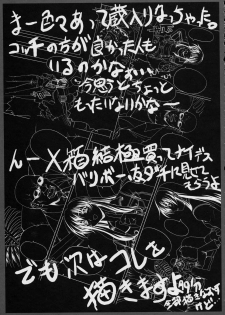 まー色々あって蔵入りなっちゃった。
コッチの方が良かった人も
いるのかなぁ…
今思うとちょっと
もったいないかなー
んーX箱結極買ってナイデス
バリボー友ダチに見せて
もらうよ
でも次はコレを
描きますよ